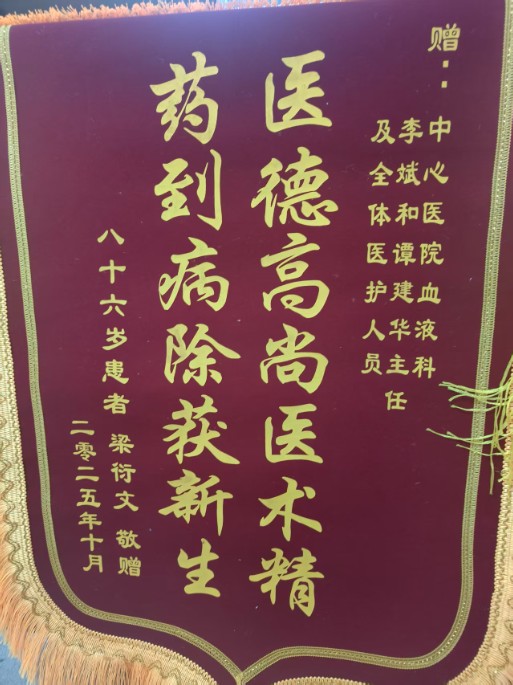 赠：
中心医院血液科
李斌和谭建华主任
及全体医护人员
医德高尚医术精
药到病除获新生
八十六岁患者 梁衍文 敬赠
二零二五年十月